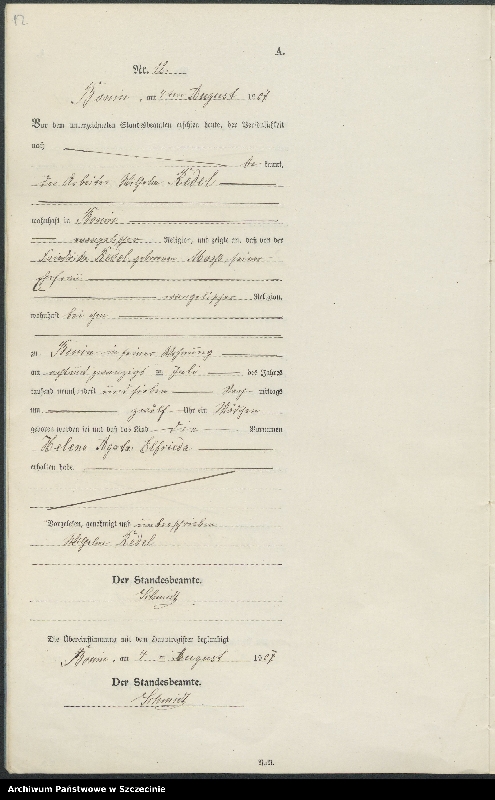 12
A.
Nr. 12.
Bonin, am 4ten August 1907
Vor dem unterzeichneten Standesbeamten erschien heute, der Persönlichkeit
nach
be kannt,
der Arbeiter Wilhelm Redel
wohnhaft in Bonin
evangelischer Religion, und zeigte an, daß von der
Friederike Redel geborenen seiner
Ehefrau
evangelischer Religion,
wohnhaft bei ihm
zu Bonin in seiner Wohnung
am achtundzwanzigsten Juli des Jahres
tausend neunhundert und sieben Nach mittags
um zwölf Uhr ein Mädchen
geboren worden sei und daß das Kind die Vornamen
Helene Agate Elfrieda
erhalten habe.
Vorgelesen, genehmigt und unterschrieben
Wilhelm Redel
Der Standesbeamte.
Schmidt
Die Übereinstimmung mit dem Hauptregister beglaubigt
Bonin, am 4. August 1907
Der Standesbeamte.
Schmidt
Archiwum Państwowe w Szczecinie